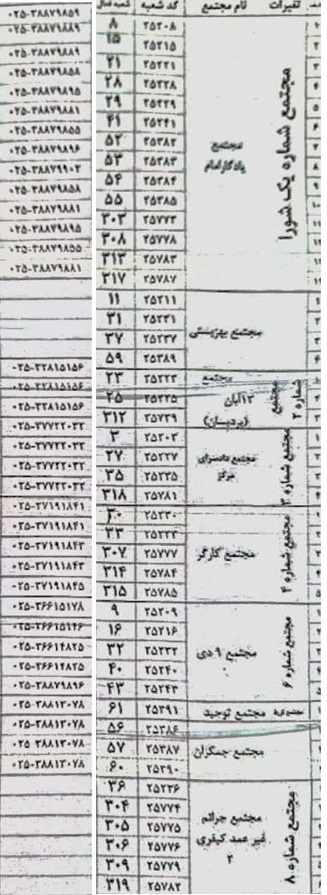 تغییرات نام مجتمع کد شعبه شعبه فعال
مجتمع شماره یک شورا
مجتمع یادگار امام
۲۵۲۰۸ ۸ ۰۲۵-۳۸۸۷۹۸۵۹
۲۵۲۱۵ ۱۵ ۰۲۵-۳۸۸۷۹۸۸۹
۲۵۲۲۱ ۲۱
۲۵۲۲۸ ۲۸ ۰۲۵-۳۸۸۷۹۸۵۹
۲۵۲۲۹ ۲۹ ۰۲۵-۳۸۸۷۹۸۵۸
۲۵۲۴۱ ۴۱ ۰۲۵-۳۸۸۷۹۸۹۵
۲۵۳۸۲ ۵۲ ۰۲۵-۳۸۸۷۹۸۸۱
۲۵۳۸۳ ۵۳ ۰۲۵-۳۸۸۷۹۸۵۵
۲۵۳۸۴ ۵۴ ۰۲۵-۳۸۸۷۹۸۹۶
۲۵۳۸۵ ۵۵ ۰۲۵-۳۸۸۷۹۹۰۲
۲۵۷۷۳ ۳۰۳ ۰۲۵-۳۸۸۷۹۸۵۸
۲۵۷۷۸ ۳۰۸ ۰۲۵-۳۸۸۷۹۸۸۱
۲۵۷۸۳ ۳۱۳ ۰۲۵-۳۸۸۷۹۸۹۵
۲۵۷۸۷ ۳۱۷ ۰۲۵-۳۸۸۷۹۸۵۵
۰۲۵-۳۸۸۷۹۸۸۱
مجتمع بهزیستی
۲۵۲۱۱ ۱۱
۲۵۲۳۱ ۳۱
۲۵۲۳۷ ۳۷
۲۵۳۸۹ ۵۹
مجتمع شماره ۲
مجتمع ۱۳آبان (پردیسان)
۲۵۲۲۳ ۲۳ ۰۲۵-۳۲۸۱۵۱۵۶
۲۵۲۲۵ ۲۵ ۰۲۵-۳۲۸۱۵۱۵۶
۲۵۷۳۹ ۳۱۲ ۰۲۵-۳۲۸۱۵۱۵۶
مجتمع شماره ۳
مجتمع دادسرای مرکز
۲۵۲۰۳ ۳ ۰۲۵-۳۷۷۲۲۰۳۲
۲۵۲۲۷ ۲۷ ۰۲۵-۳۷۷۲۲۰۳۲
۲۵۲۳۵ ۳۵ ۰۲۵-۳۷۷۲۲۰۳۲
۲۵۷۸۱ ۳۱۸ ۰۲۵-۳۷۷۲۲۰۳۲
مجتمع شماره ۴
مجتمع کارگر
۲۵۲۳۰ ۳۰ ۰۲۵-۳۷۱۹۱۸۴۱
۲۵۲۳۳ ۳۳ ۰۲۵-۳۷۱۹۱۸۴۱
۲۵۷۷۷ ۳۰۷ ۰۲۵-۳۷۱۹۱۸۴۳
۲۵۷۸۴ ۳۱۴ ۰۲۵-۳۷۱۹۱۸۴۳
۲۵۷۸۵ ۳۱۵ ۰۲۵-۳۷۱۹۱۸۴۵
مجتمع شماره ۶
مجتمع ۹ دی
۲۵۲۰۹ ۹ ۰۲۵-۳۶۶۱۵۱۷۸
۲۵۲۱۶ ۱۶ ۰۲۵-۳۶۶۱۵۱۴۶
۲۵۲۳۲ ۳۲ ۰۲۵-۳۶۶۱۴۸۲۵
۲۵۲۴۰ ۴۰ ۰۲۵-۳۶۶۱۴۸۲۵
۲۵۲۴۳ ۴۳ ۰۲۵-۳۸۸۷۹۸۹۶
مجتمع توحید
۲۵۳۹۱ ۶۱ ۰۲۵-۳۸۸۱۳۰۷۸
مجتمع جمکران
۲۵۳۸۶ ۵۶ ۰۲۵-۳۸۸۱۳۰۷۸
۲۵۳۸۷ ۵۷ ۰۲۵-۳۸۸۱۳۰۷۸
۲۵۳۹۰ ۶۰ ۰۲۵-۳۸۸۱۳۰۷۸
مجتمع شماره ۸
مجتمع جرائم غیر عمد کیفری ۲
۲۵۲۳۶ ۳۶
۲۵۷۷۴ ۳۰۴
۲۵۷۷۵ ۳۰۵
۲۵۷۷۶ ۳۰۶
۲۵۷۷۹ ۳۰۹
۲۵۷۸۲ ۳۱۹